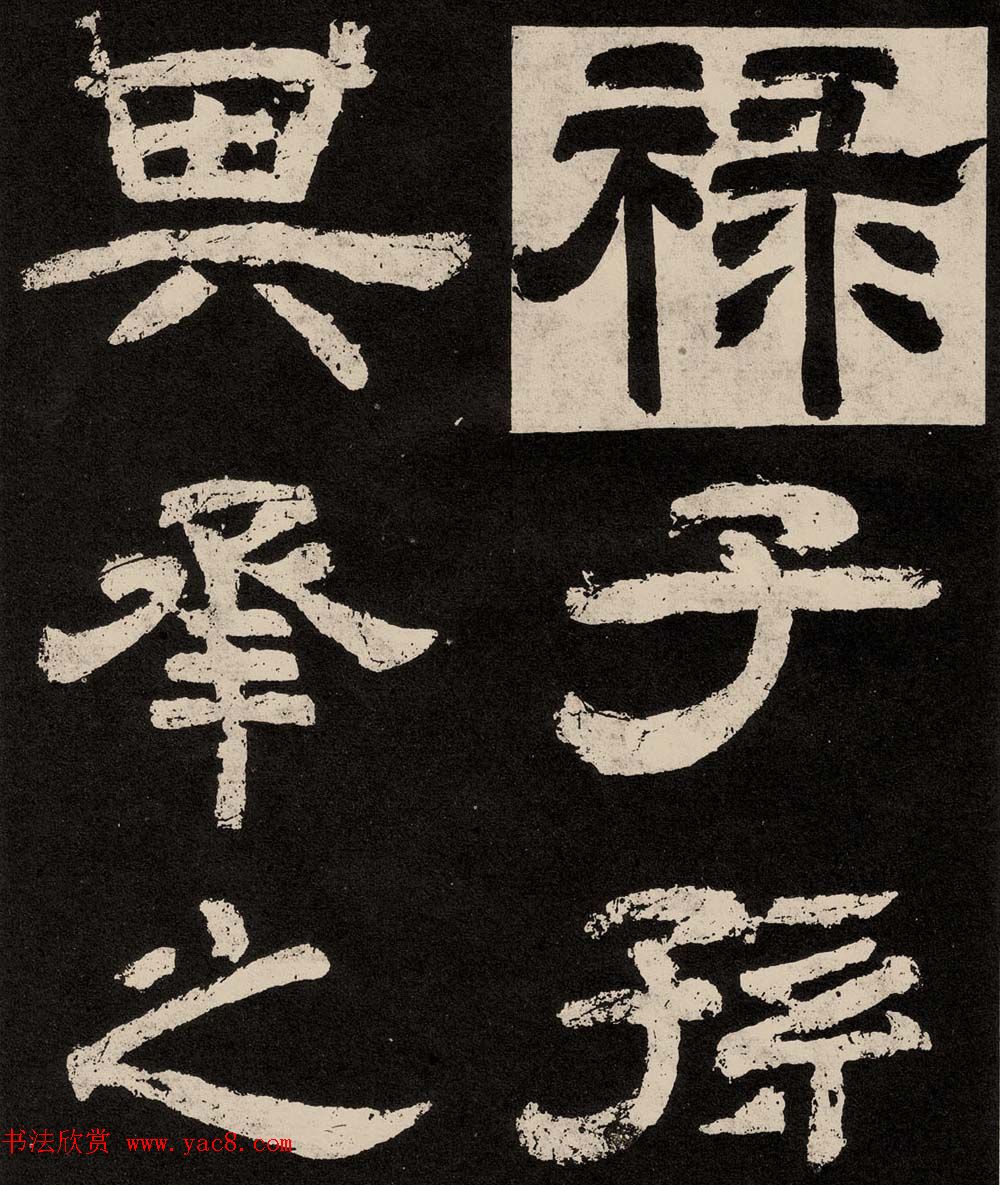 禄子孫
其承之
书法欣赏 www.yac8.com